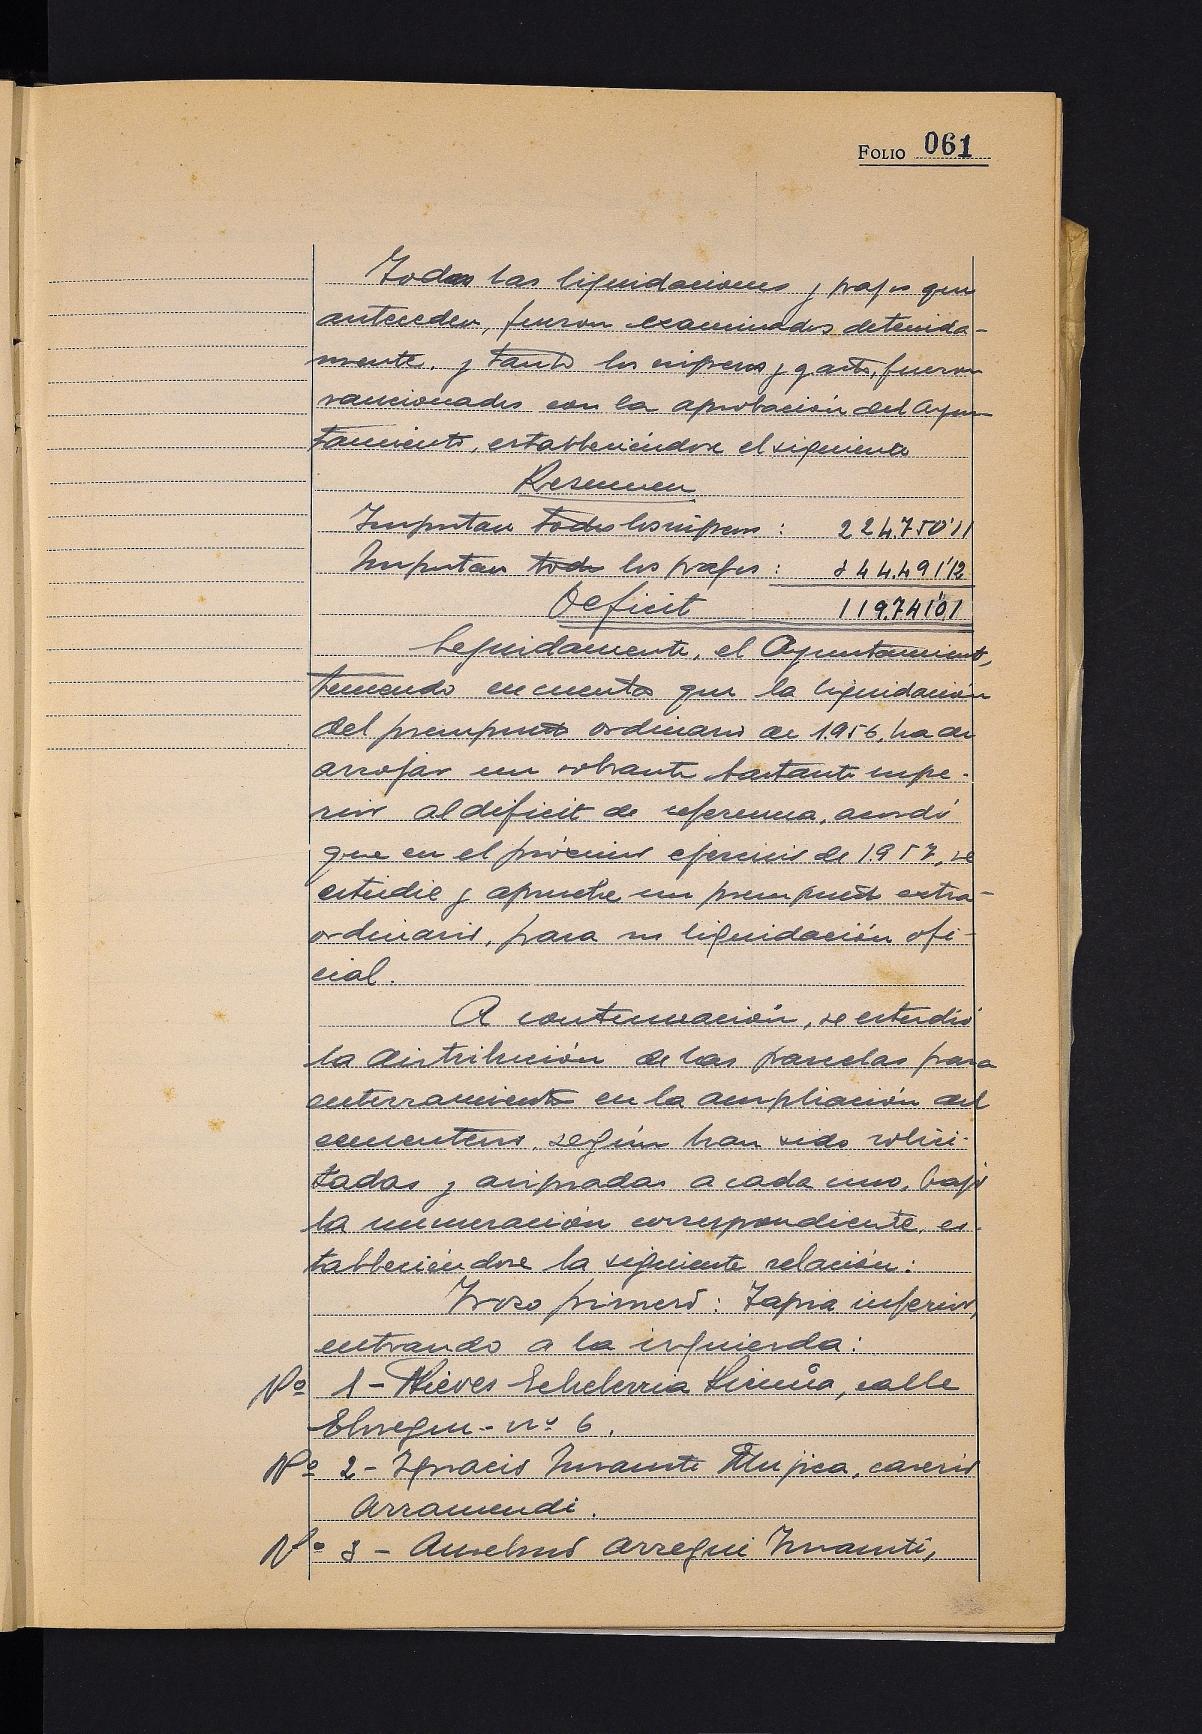 FOLIO 061
Todas las liquidaciones y pagos que
anteceden, fueron examinados detenida-
mente. y tanto los ingresos y gastos, fueron
sancionados con la aprobación del Ayun-
tamiento, estableciéndose el siguiente
Resumen
Importan todos los ingresos: 224.750'11
Importan todos los pagos: 344.491'12
Deficit 119.741'01
Seguidamente, el Ayuntamiento,
teniendo en cuenta que la liquidación
del presupuesto ordinario de 1.956, ha de
arrojar un sobrante bastante supe-
rior al deficit de referencia, acordó
que en el próximo ejercicio de 1.957, se
estudie y apruebe un presupuesto extra-
ordinario, para su liquidación ofi-
cial.
A continuación, se estudió
la distribución de las parcelas para
enterramiento en la ampliación del
cementerio, según han sido solici-
tadas y asignadas a cada uno, bajo
la numeración correspondiente, es-
tableciéndose la siguiente relación:
Trozo primero: Tapia inferior,
entrando a la izquierda:
Nº 1 - Nieves Echeverria, calle
Elosegui - nº 6.
Nº 2 - Ignacio Insausti Mujica, caserio
Arramendi.
Nº 3 - Anselmo Arregui Insausti,